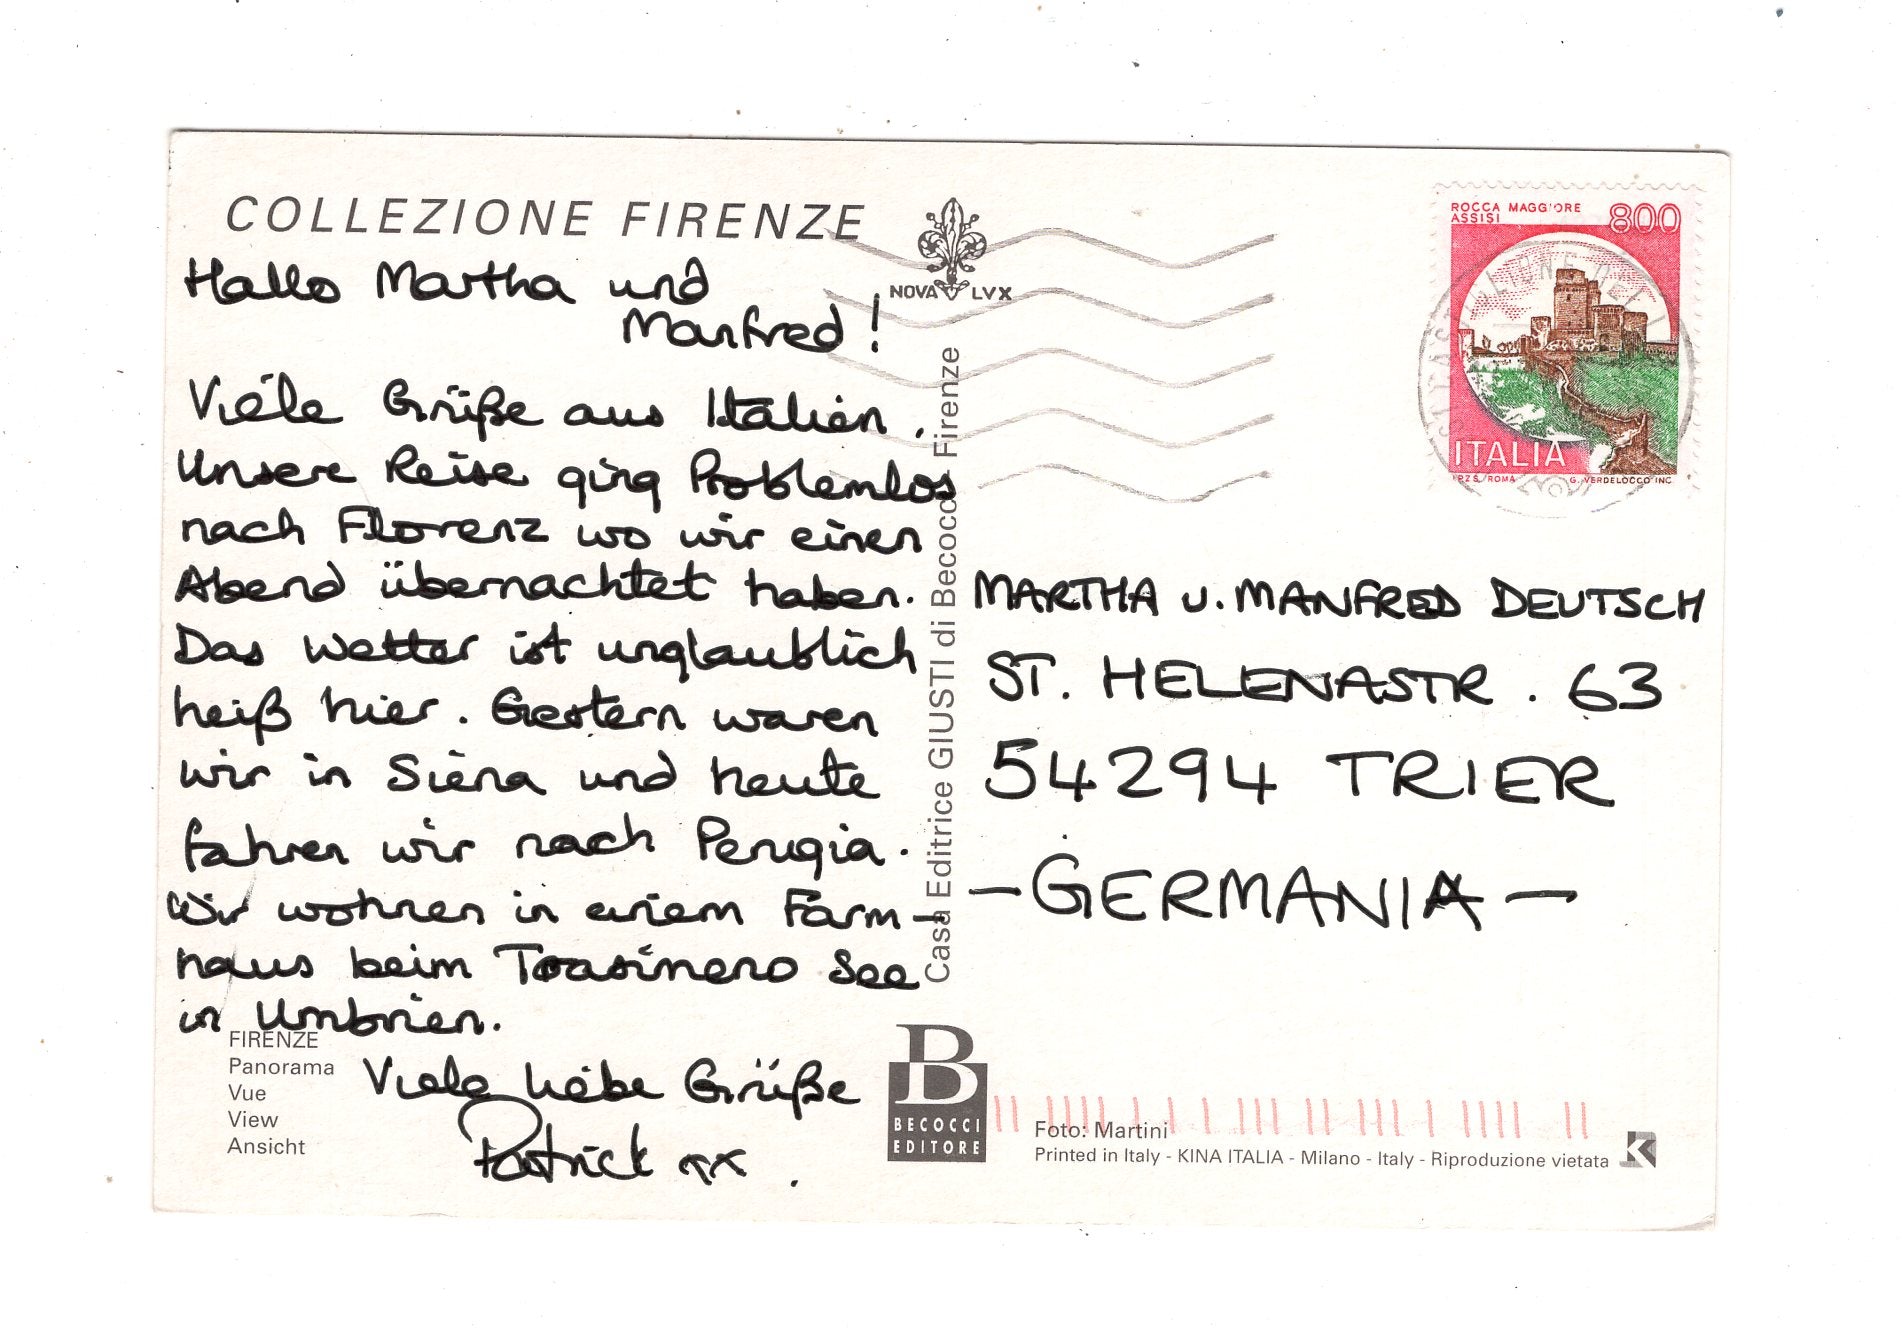 COLLEZIONE FIRENZE
NOVA LVX
Hallo Martha und
Manfred!
Viele Grüße aus Italien.
Unsere Reise ging Problemlos
nach Florenz wo wir einen
Abend übernachtet haben.
Das Wetter ist unglaublich
heiß hier. Gestern waren
wir in Siena und heute
fahren wir nach Perugia.
Wir wohnen in einem Farm-
haus beim Trasimeno See
in Umbrien.
Viele liebe Grüße
Patrick xx.
FIRENZE
Panorama
Vue
View
Ansicht
Casa Editrice GIUSTI di Becocci Firenze
B
BECOCCI
EDITORE
ROCCA MAGGIORE
ASSISI
800
ITALIA
I.P.Z.S. ROMA G. VERDELOCCO INC.
MARTHA U. MANFRED DEUTSCH
ST. HELENASTR. 63
54294 TRIER
-GERMANIA-
Foto: Martini
Printed in Italy - KINA ITALIA - Milano - Italy - Riproduzione vietata
K